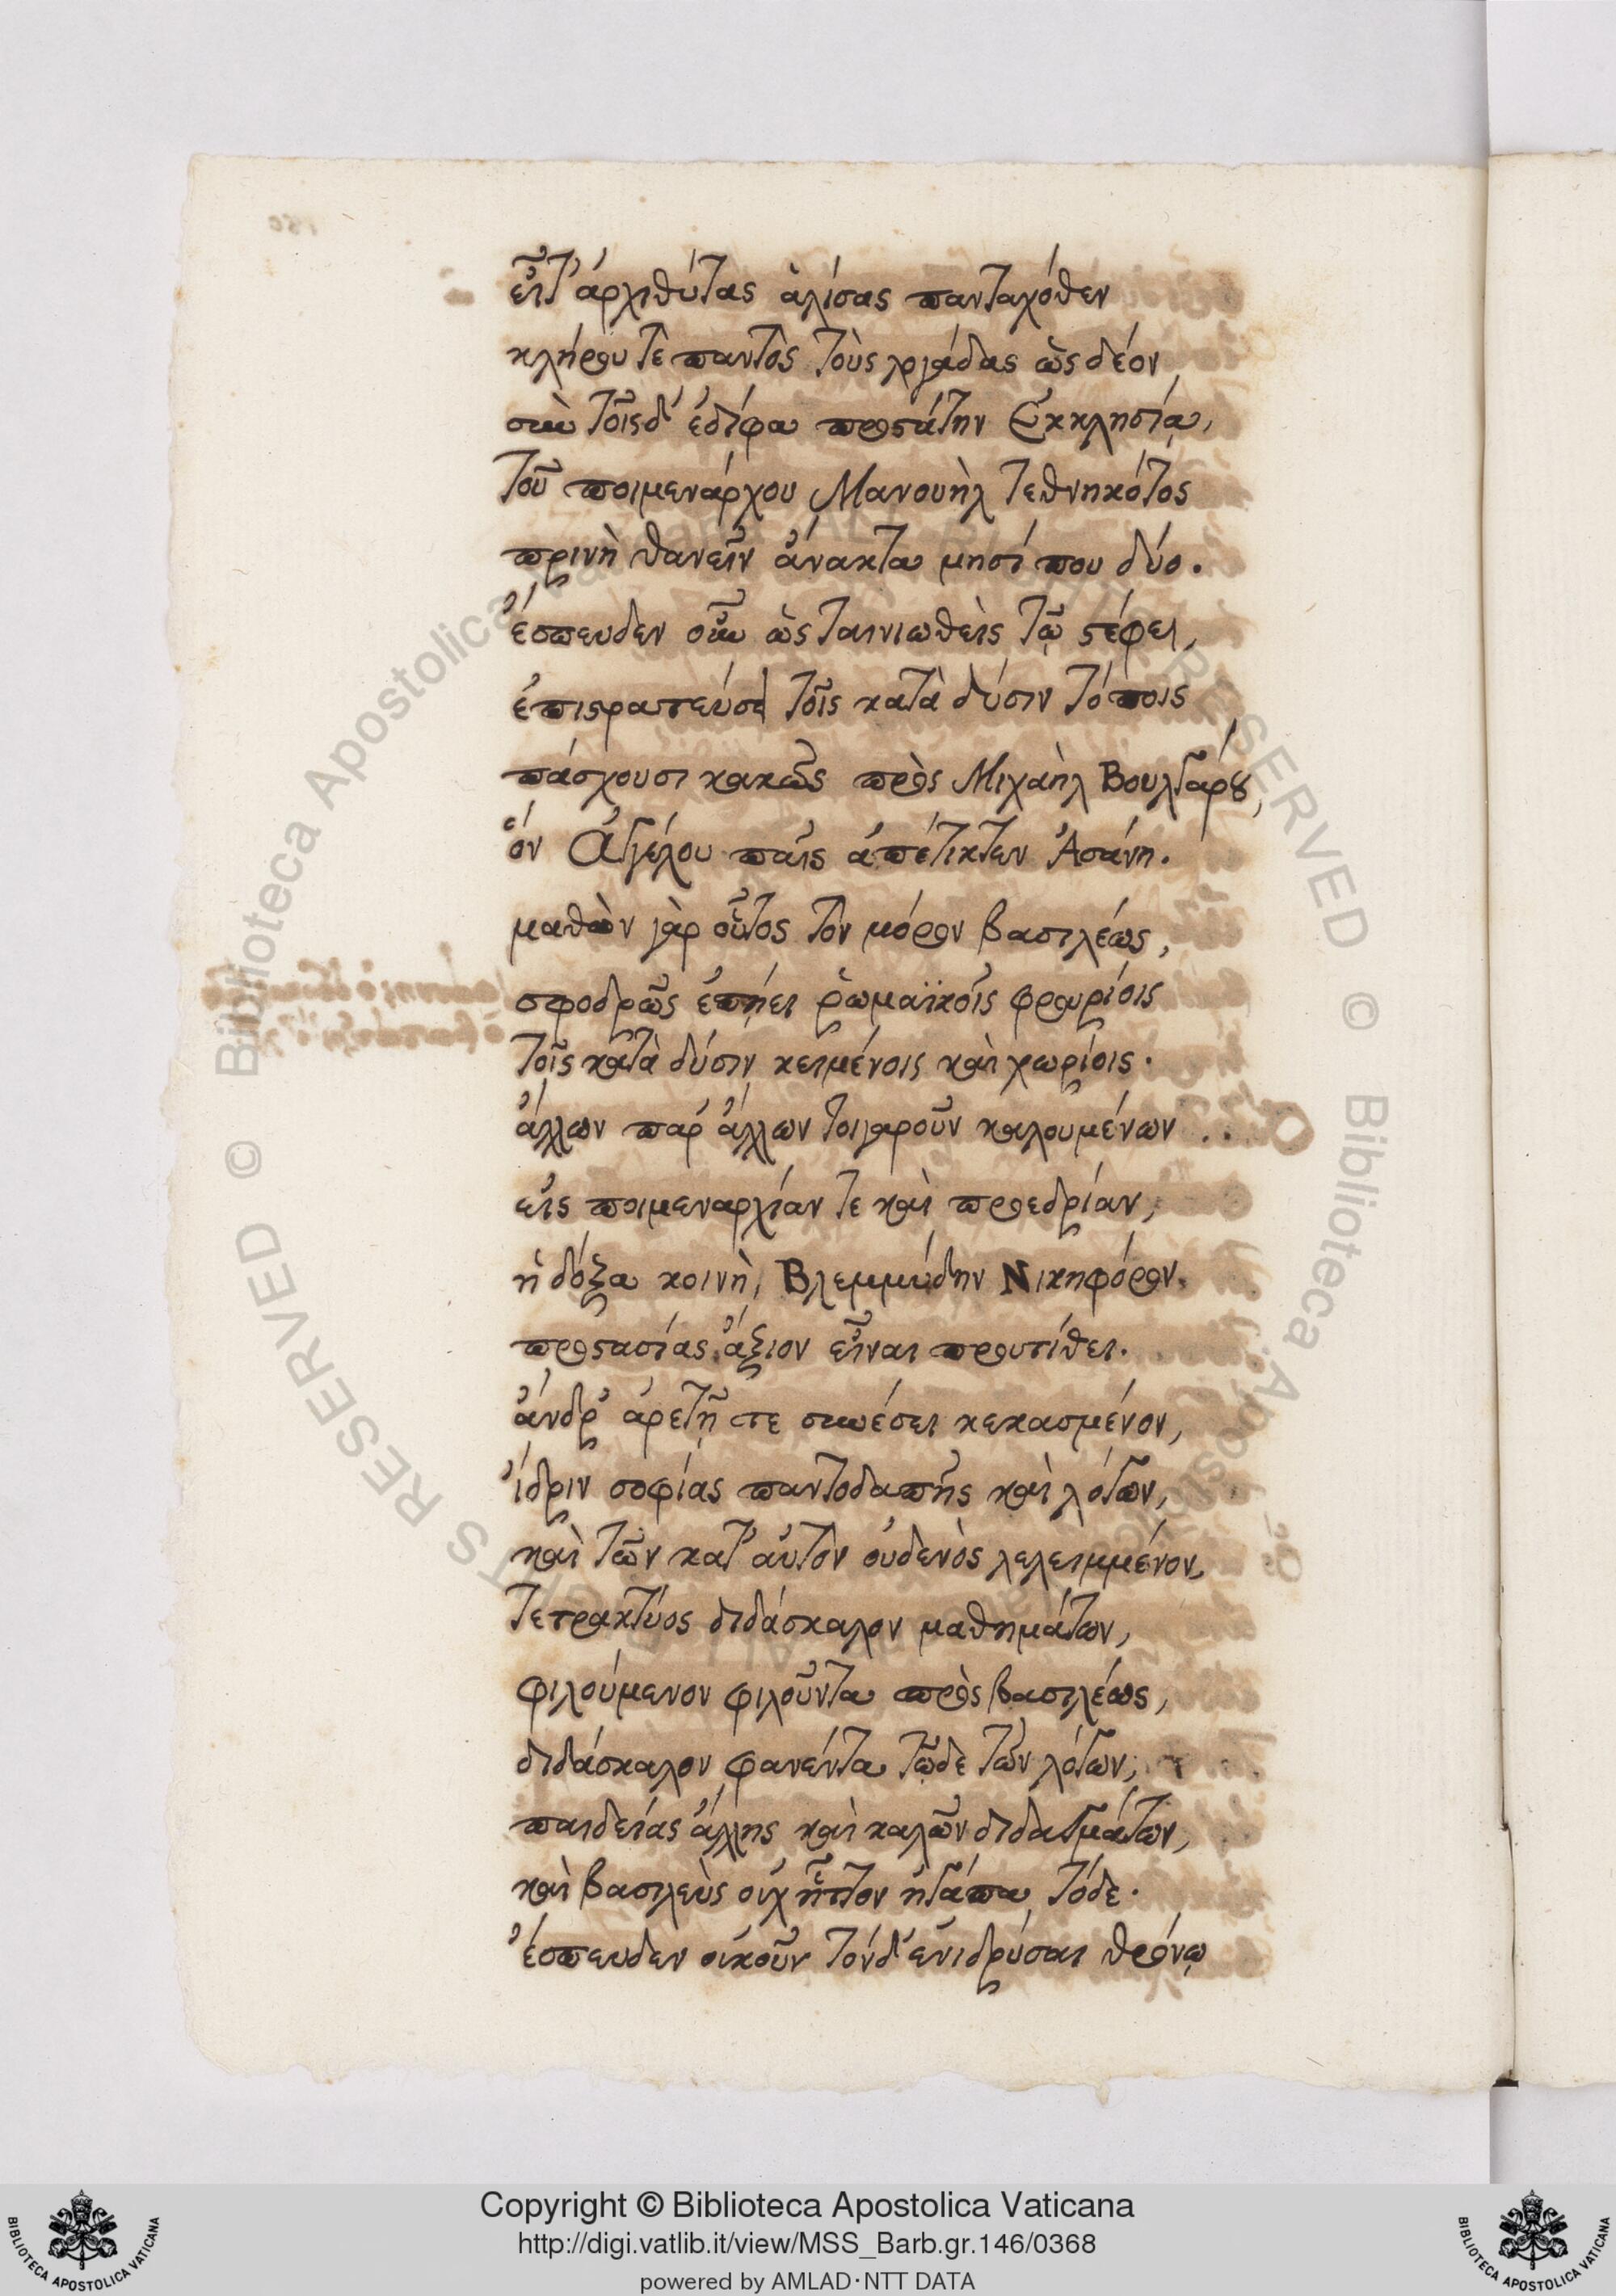 εἶτ' ἀρχιθύτας ἁλίσας πανταχόθεν
κλήρου τὲ παντὸς τοὺς λογάδας ὡς δέον
σὺν τοῖσδ' ἐδίφα προστάτην Ἐκκλησίᾳ,
τοῦ ποιμενάρχου Μανουὴλ τεθνηκότος
πρινὴ θανεῖν ἄνακτα μησί που δύο.
ἔσπευδεν οὖν ὡς ταινιωθεὶς τῷ στέφει,
ἐπιστρατεύσῃ τοῖς κατὰ δύσιν τόποις
πάσχουσι κακῶς πρὸς Μιχαὴλ Βουλγάρου,
ὃν Ἀγγέλου παῖς ἀπέτικτεν Ἀσάνη.
μαθὼν γὰρ οὗτος τὸν μόρον βασιλέως,
σφοδρῶς ἐπῄει ῥωμαϊκοῖς φρουρίοις
τοῖς κατὰ δύσιν κειμένοις καὶ χωρίοις.
ἄλλων παρ' ἄλλων τοιγαροῦν καλουμένων
εἰς ποιμεναρχίαν τε καὶ προεδρίαν,
ἡ δόξα κοινὴ, Βλεμμύδην Νικηφόρον
προστασίας ἄξιον εἶναι προυτίθει.
ἄνδρ' ἀρετῇ τε συνέσει κεκασμένον,
ἴδριν σοφίας παντοδαπῆς καὶ λόγων,
καὶ τῶν κατ' αὐτὸν οὐδενὸς λελειμμένον,
τετρακτύος διδάσκαλον μαθημάτων,
φιλούμενον φιλοῦντα πρὸς βασιλέως,
διδάσκαλον φανέντα τῷδε τῶν λόγων,
παιδείας ἄλλης καὶ καλῶν διδαγμάτων,
καὶ βασιλεὺς οὐχ ἧττον ἠγάπα τόδε.
ἔσπευδεν οὐκοῦν τόνδ' ἐνιδρύσαι θρόνῳ
Copyright © Biblioteca Apostolica Vaticana
http://digi.vatlib.it/view/MSS_Barb.gr.146/0368
powered by AMLAD·NTT DATA